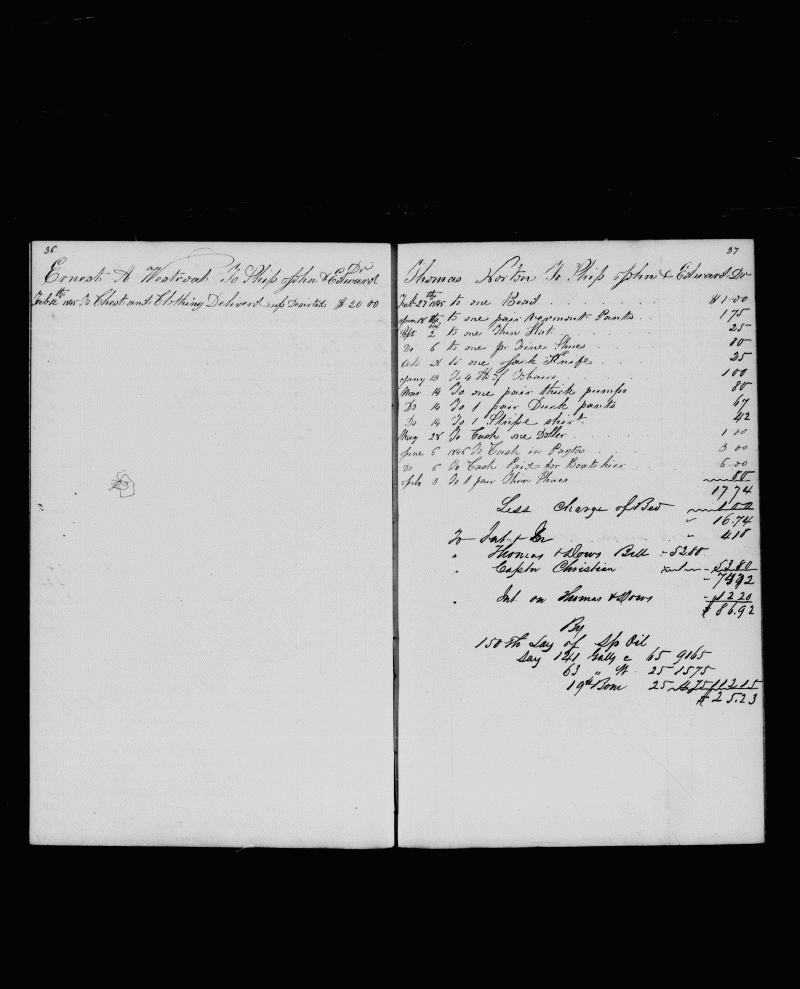 36
Ernest A Westcoat To Ship John & Edward Dr
Feb 12th 1845 To Chest and Clothing Delivered up Deserted $ 20 00
37
Thomas Norton To Ship John & Edward Dr
Feb 27th 1845 to one Bead $1.00
to one pair Vermont Pants 175
Sept 2 to one Thin Hat 25
Do 6 to one pr Fine Shues 80
28 to one Jack Knife 25
Jany 13 To 4 lb of Tobacco 100
Mar 14 To one pair thick pumps 80
Do 14 To 1 pair Duck pants 67
Do 14 To 1 Stripe shirt 42
May 28 To Cash one Doller 1 00
June 6 1846 To Cash in Payta 3 00
Do 6 To Cash Paid for Boat hier 6.00
3 To 1 pair Thin Shues 80
17 74
Less Charge of Bed 1 00
16.74
To Int. & 418
" Thomas & Dows Bill 5280
" Captn Christian 5380
7492
" Int. on Thomas & Dows 1220
$ 86.92
By
150th Lay of Sp Oil
Say 141 Galls c 65 9165
63 " W 25 1575
19 lb Bone 25 475 11215
$ 25.23